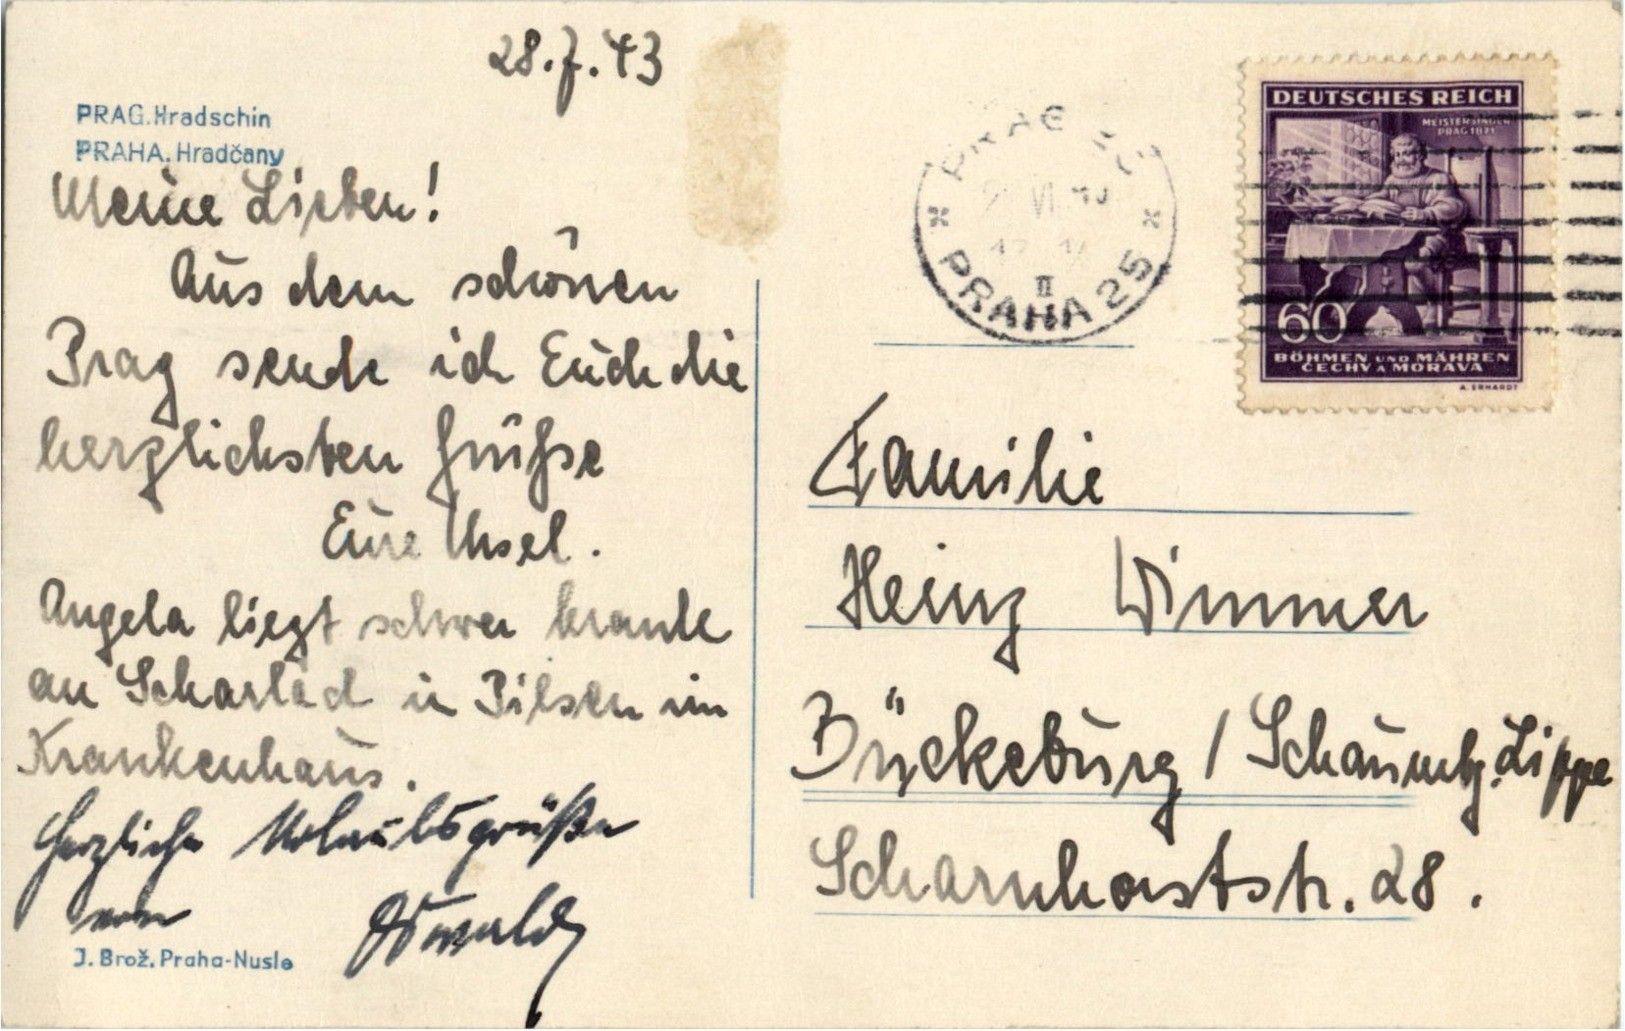 28.7.43
PRAG.Hradschin
PRAHA.Hradčany
Meine Lieben!
Aus dem schönen
Prag sende ich Euch die
herzlichsten Grüsse
Eure Ursel.
Angela liegt schwer krank
an Scharlach in Pilsen im
Krankenhaus.
Herzliche Urlaubsgrüße
von Oswald
J. Brož. Praha-Nusle
PRAG
PRAHA 25
II
DEUTSCHES REICH
MEISTERSINGER
PRAG 1871
60
BÖHMEN UND MÄHREN
ČECHY A MORAVA
A. ERHARDT
Familie
Heinz Wimmer
Bückeburg / Schaumbg. Lippe
Scharnhorststr. 28.